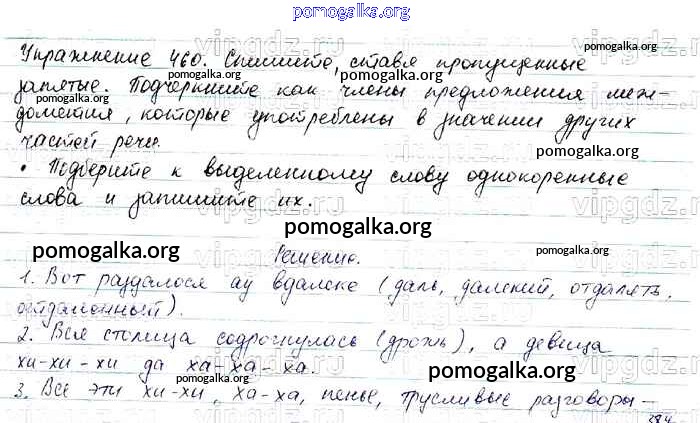 pomogalka.org
Упражнение 460. Спишите, ставя пропущенные
pomogalka.org pomogalka.org
запятые. Подчеркните как члены предложения меж-
дометия, которые употреблены в значении других
частей речи.
pomogalka.org pomogalka.org
• Подберите к выделенному слову однокоренные
слова и запишите их.
pomogalka.org pomogalka.org
Решение.
1. Вот раздалося ау вдалеке (даль, далекий, отдалять,
отдаленный).
2. Вся столица содрогнулась (дрожь), а девица
хи-хи-хи да ха-ха-ха.
pomogalka.org pomogalka.org
3. Все эти хи-хи, ха-ха, пенье, трусливые разговоры –
284